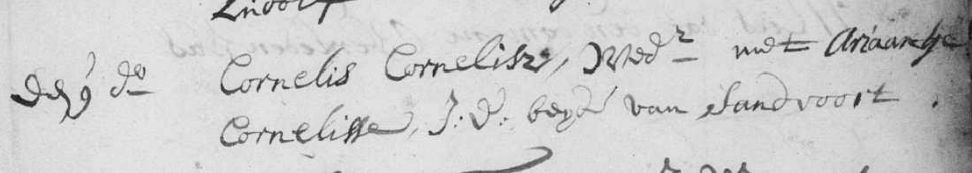 Den 9 do Cornelis Cornelisze, Wedr met Ariaantje
Cornelisse, J: D: beyde van Sandvoort.